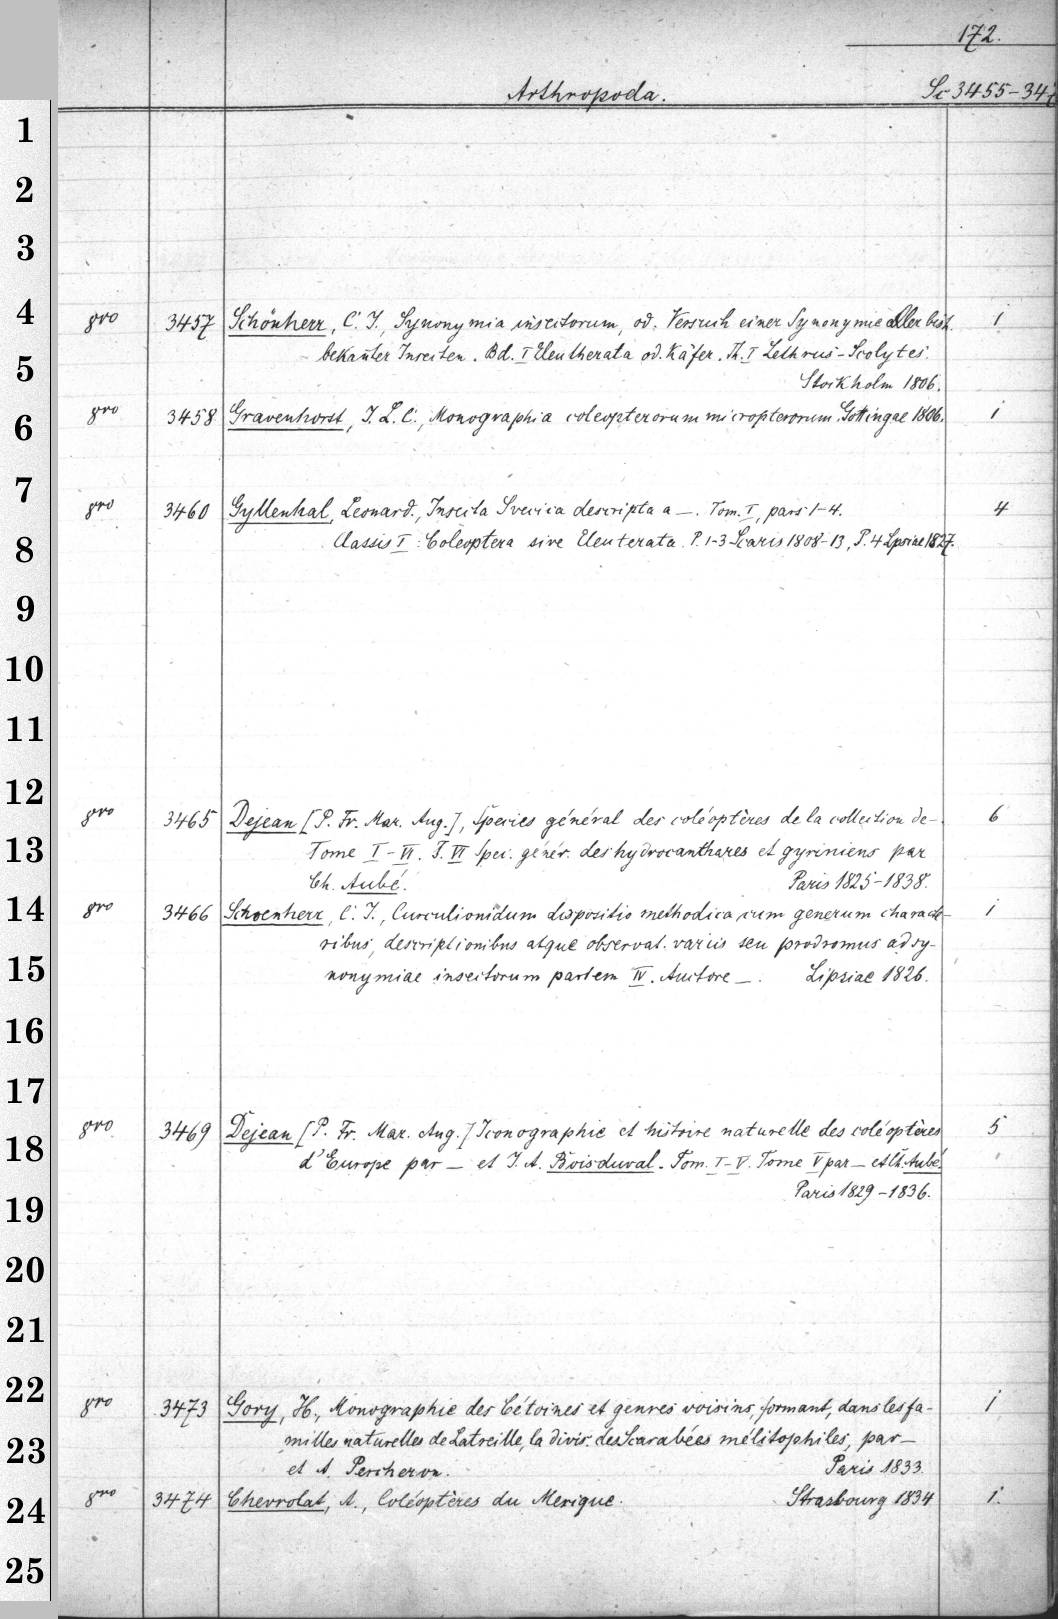 172.
Arthropoda. Sc 3455-347
1
2
3
4 8vo 3457 Schönherr, C. J., Synonymia insectorum, od. Versuch einer Synonymie aller bish. 1
bekañter Insecten. Bd. I Eleutherata od. Käfer. Th. I Lethrus-Scolytes.
5 Stockholm 1806.
6 8vo 3458 Gravenhorst, J. L. C., Monographia coleopterorum micropterorum. Gottingae 1806. 1
7 8vo 3460 Gyllenhal, Leonard., Insecta Svecica descripta a —. Tom. I, pars 1-4. 4
8 Classis I: Coleoptera sive Eleuterata. P. 1-3 Scaris 1808-13, P. 4 Lpsiae 1827.
9
10
11
12
8vo 3465 Dejean [P. Fr. Mar. Aug.], Species général des coléoptères de la collection de-. 6
13 Tome I-VI. T. VI Spec. génér. des hydrocanthares et gyriniens par
Ch. Aubé. Paris 1825-1838.
14 8vo 3466 Schoenherr, C. J., Curculionidum dispositio methodica cum generum characte- 1
ribus, descriptionibus atque observat. variis seu prodromus ad sy-
15 nonymiae insectorum partem IV. Auctore —. Lipsiae 1826.
16
17
8vo 3469 Dejean [P. Fr. Mar. Aug.] Iconographie et histoire naturelle des coléoptères 5
18 d'Europe par — et J. A. Boisduval. Tom. I-V. Tome V par — et Ch. Aubé.
Paris 1829-1836.
19
20
21
22 8vo 3473 Gory, H., Monographie des Cétoines et genres voisins, formant, dans les fa- 1
milles naturelles de Latreille, la divis. des Scarabées mélitophiles, par —
23 et A. Percheron. Paris 1833.
24 8vo 3474 Chevrolat, A., Coléoptères du Mexique. Strasbourg 1834 1.
25